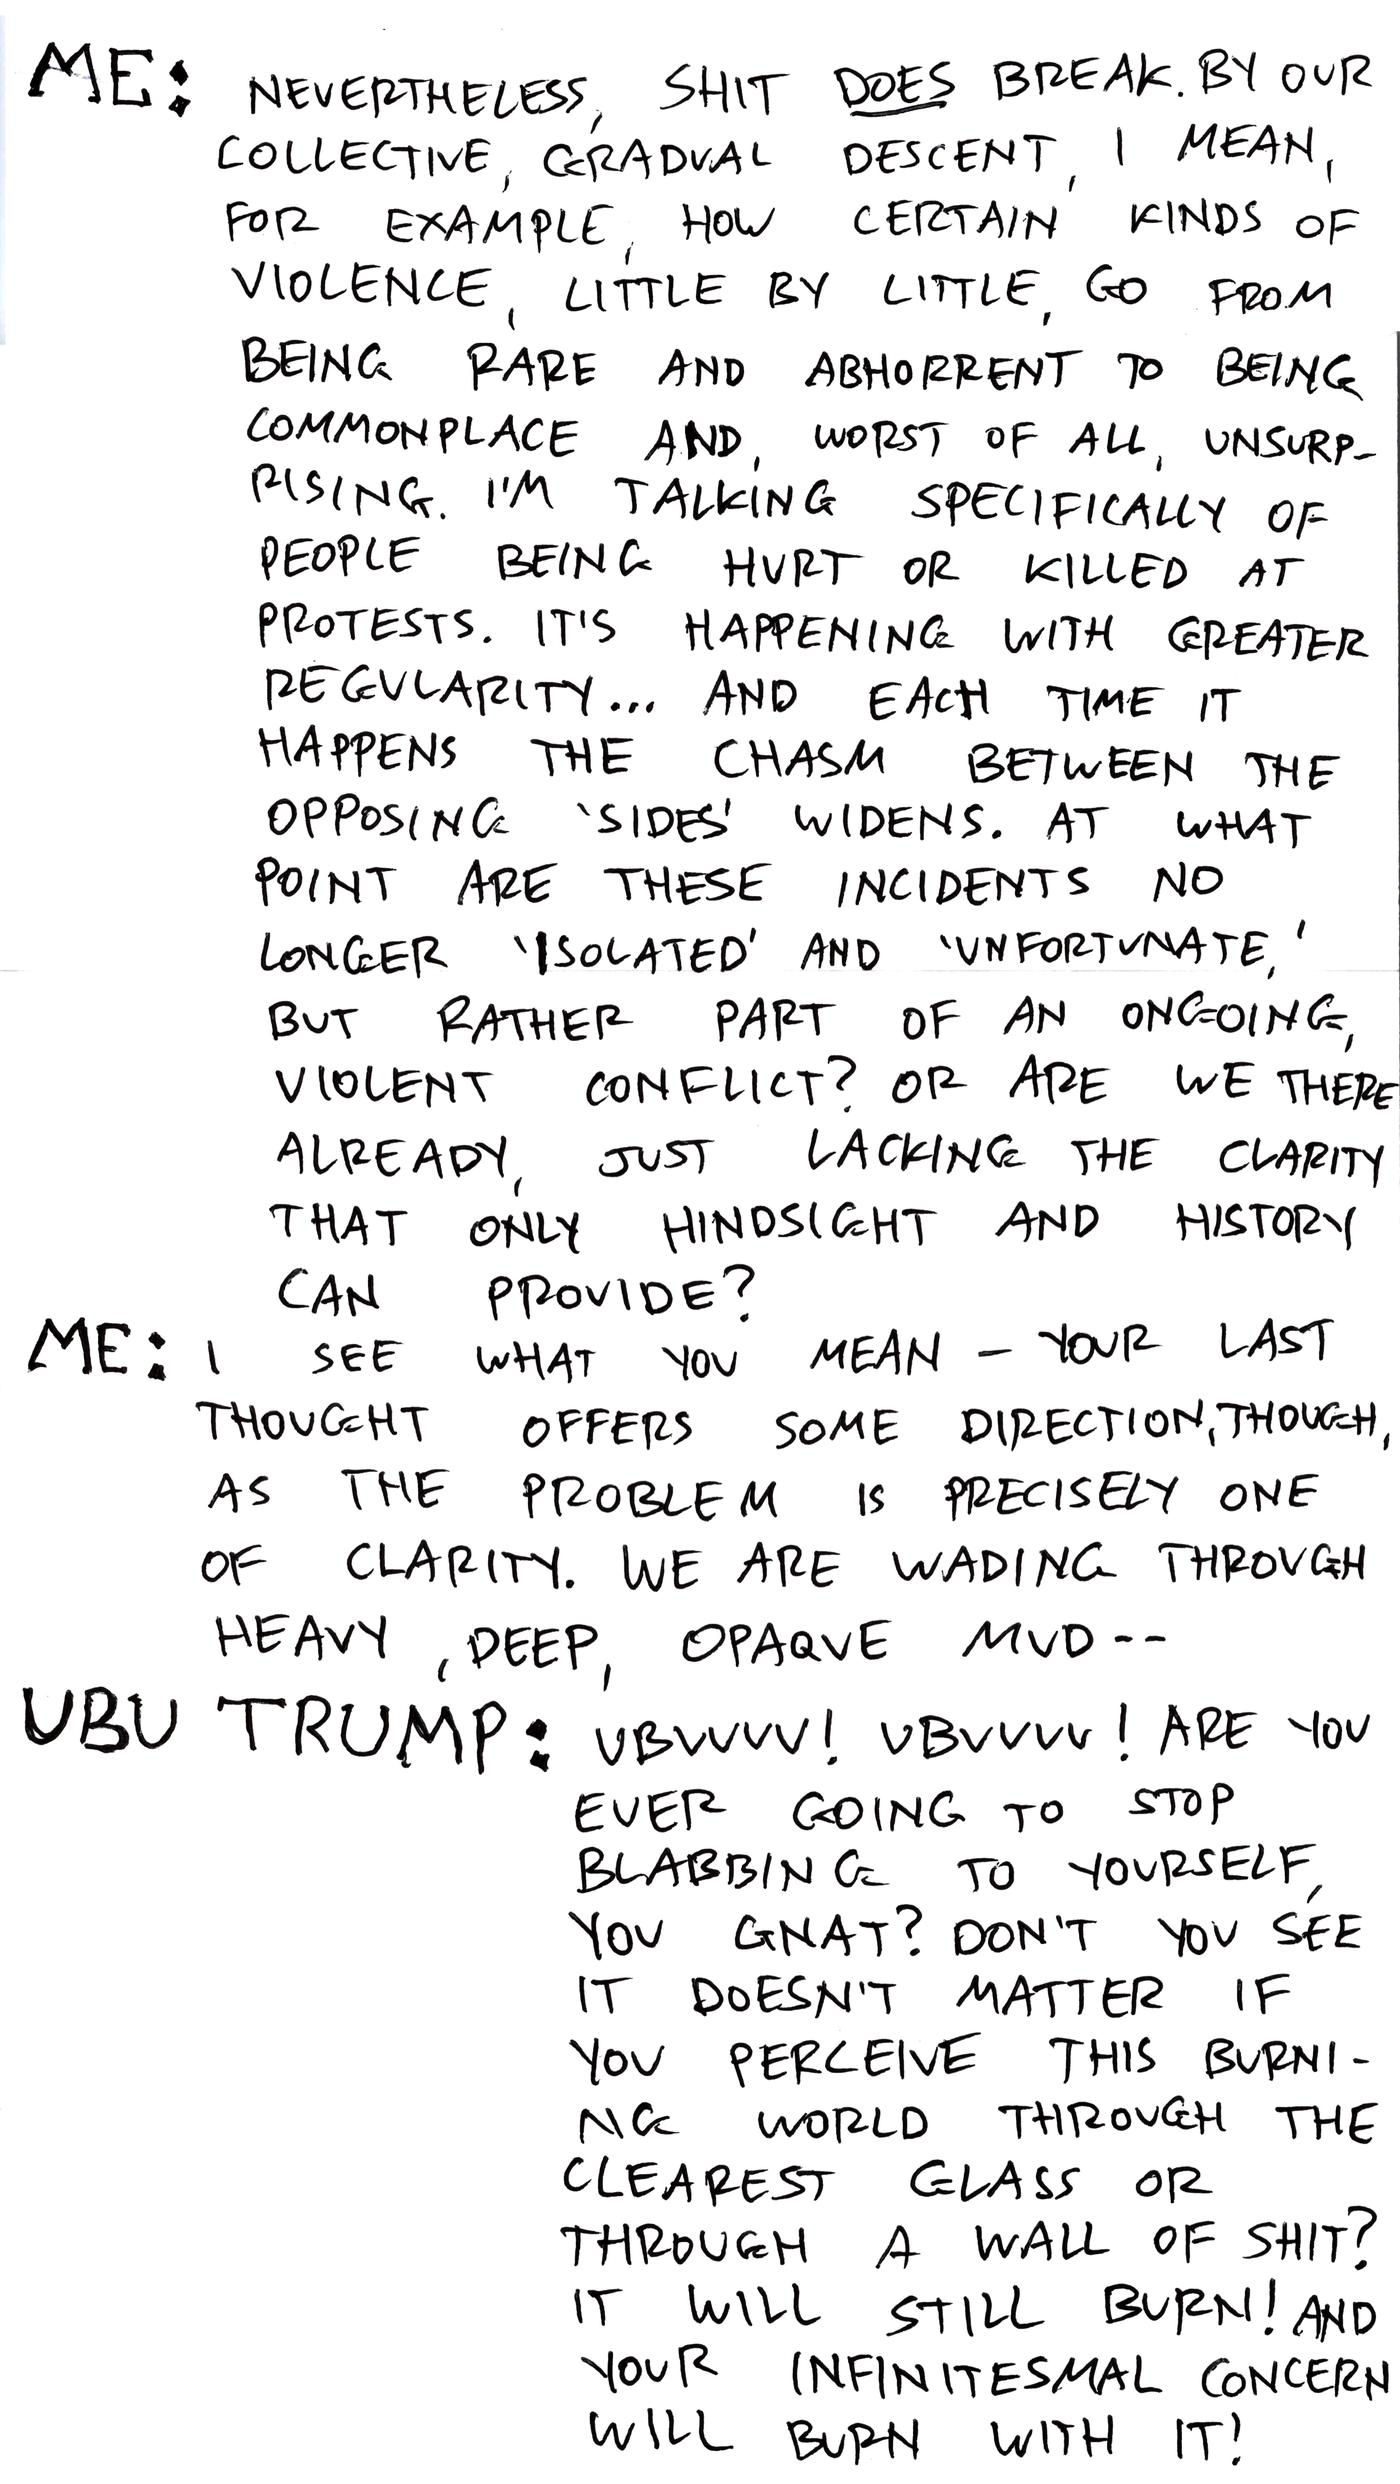 ME: NEVERTHELESS, SHIT DOES BREAK. BY OUR
COLLECTIVE, GRADUAL DESCENT, I MEAN,
FOR EXAMPLE, HOW CERTAIN KINDS OF
VIOLENCE, LITTLE BY LITTLE, GO FROM
BEING RARE AND ABHORRENT TO BEING
COMMONPLACE AND, WORST OF ALL, UNSURP-
RISING. I'M TALKING SPECIFICALLY OF
PEOPLE BEING HURT OR KILLED AT
PROTESTS. IT'S HAPPENING WITH GREATER
REGULARITY... AND EACH TIME IT
HAPPENS THE CHASM BETWEEN THE
OPPOSING 'SIDES' WIDENS. AT WHAT
POINT ARE THESE INCIDENTS NO
LONGER 'ISOLATED' AND 'UNFORTUNATE,'
BUT RATHER PART OF AN ONGOING,
VIOLENT CONFLICT? OR ARE WE THERE
ALREADY, JUST LACKING THE CLARITY
THAT ONLY HINDSIGHT AND HISTORY
CAN PROVIDE?
ME: I SEE WHAT YOU MEAN – YOUR LAST
THOUGHT OFFERS SOME DIRECTION, THOUGH,
AS THE PROBLEM IS PRECISELY ONE
OF CLARITY. WE ARE WADING THROUGH
HEAVY, DEEP, OPAQUE MUD--
UBU TRUMP: UBUUUU! UBUUUU! ARE YOU
EVER GOING TO STOP
BLABBING TO YOURSELF,
YOU GNAT? DON'T YOU SEE
IT DOESN'T MATTER IF
YOU PERCEIVE THIS BURNI-
NG WORLD THROUGH THE
CLEAREST GLASS OR
THROUGH A WALL OF SHIT?
IT WILL STILL BURN! AND
YOUR INFINITESMAL CONCERN
WILL BURN WITH IT!